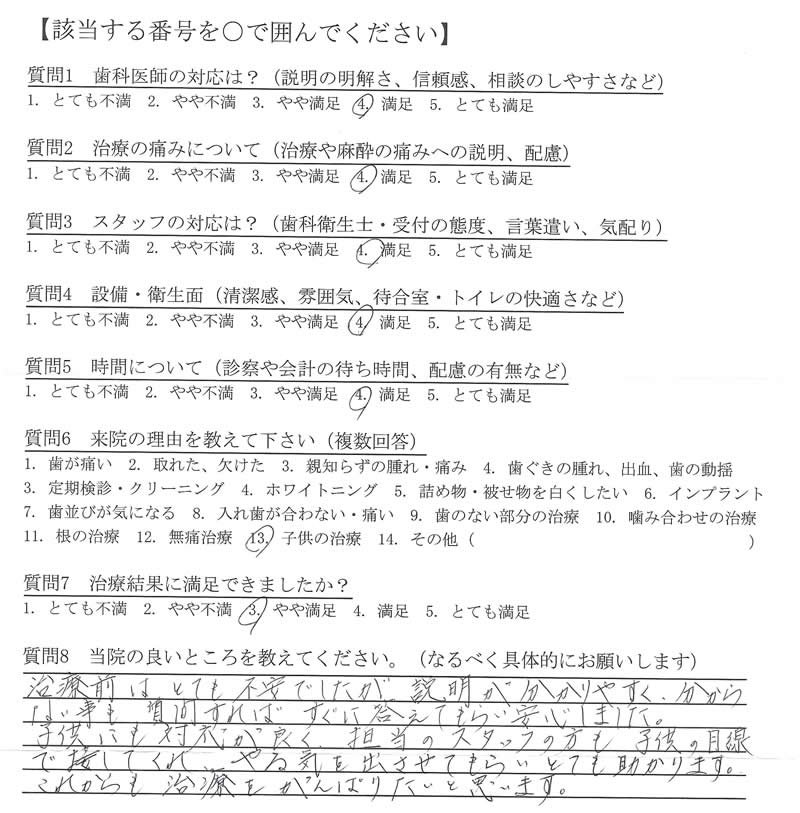 【該当する番号を○で囲んでください】
質問1　歯科医師の対応は？（説明の明解さ、信頼感、相談のしやすさなど）
1. とても不満　2. やや不満　3. やや満足　4. 満足　5. とても満足
質問2　治療の痛みについて（治療や麻酔の痛みへの説明、配慮）
1. とても不満　2. やや不満　3. やや満足　4. 満足　5. とても満足
質問3　スタッフの対応は？（歯科衛生士・受付の態度、言葉遣い、気配り）
1. とても不満　2. やや不満　3. やや満足　4. 満足　5. とても満足
質問4　設備・衛生面（清潔感、雰囲気、待合室・トイレの快適さなど）
1. とても不満　2. やや不満　3. やや満足　4. 満足　5. とても満足
質問5　時間について（診察や会計の待ち時間、配慮の有無など）
1. とても不満　2. やや不満　3. やや満足　4. 満足　5. とても満足
質問6　来院の理由を教えて下さい（複数回答）
1. 歯が痛い　2. 取れた、欠けた　3. 親知らずの腫れ・痛み　4. 歯ぐきの腫れ、出血、歯の動揺
3. 定期検診・クリーニング　4. ホワイトニング　5. 詰め物・被せ物を白くしたい　6. インプラント
7. 歯並びが気になる　8. 入れ歯が合わない・痛い　9. 歯のない部分の治療　10. 噛み合わせの治療
11. 根の治療　12. 無痛治療　13. 子供の治療　14. その他（　　　　　　　　　　　　）
質問7　治療結果に満足できましたか？
1. とても不満　2. やや不満　3. やや満足　4. 満足　5. とても満足
質問8　当院の良いところを教えてください。（なるべく具体的にお願いします）
治療前はとても不安でしたが、説明が分かりやすく、分から
ない事も質問すればすぐに答えてもらい安心しました。
子供にも対応が良く、担当のスタッフの方も子供の目線
で接してくれ、やる気を出させてもらいとても助かります。
これからも治療をがんばりたいと思います。